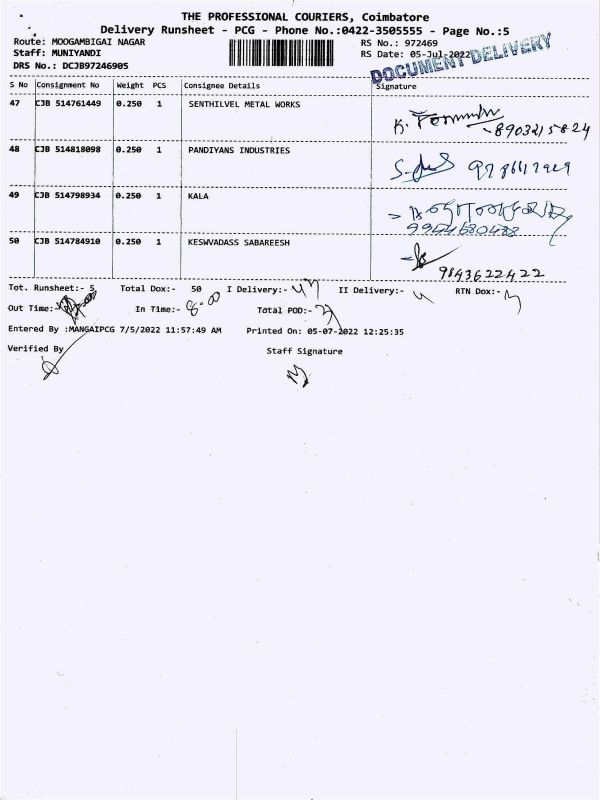 THE PROFESSIONAL COURIERS, Coimbatore
Delivery Runsheet - PCG - Phone No.:0422-3505555 - Page No.:5
Route: MOOGAMBIGAI NAGAR RS No.: 972469
Staff: MUNIYANDI RS Date: 05-Jul-2022
DRS No.: DCJB97246905
DOCUMENT DELIVERY
S No Consignment No Weight PCS Consignee Details Signature
47 CJB 514761449 0.250 1 SENTHILVEL METAL WORKS
8903215824
48 CJB 514818098 0.250 1 PANDIYANS INDUSTRIES
49 CJB 514798934 0.250 1 KALA
9944680488
50 CJB 514784910 0.250 1 KESWVADASS SABAREESH
9843622422
Tot. Runsheet:- 5 Total Dox:- 50 I Delivery:- II Delivery:- RTN Dox:-
Out Time:- In Time:- 8-00 Total POD:-
Entered By :MANGAIPCG 7/5/2022 11:57:49 AM Printed On: 05-07-2022 12:25:35
Verified By Staff Signature